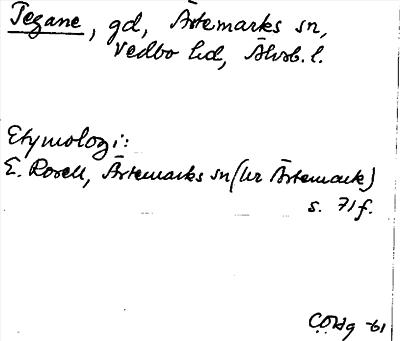 Tegane, gd, Ärtemarks sn,
Vedbo hd, Älvsb. l.
Etymologi:
E. Rosell, Ärtemarks sn (ur Ärtemark)
s. 71 f.
-61